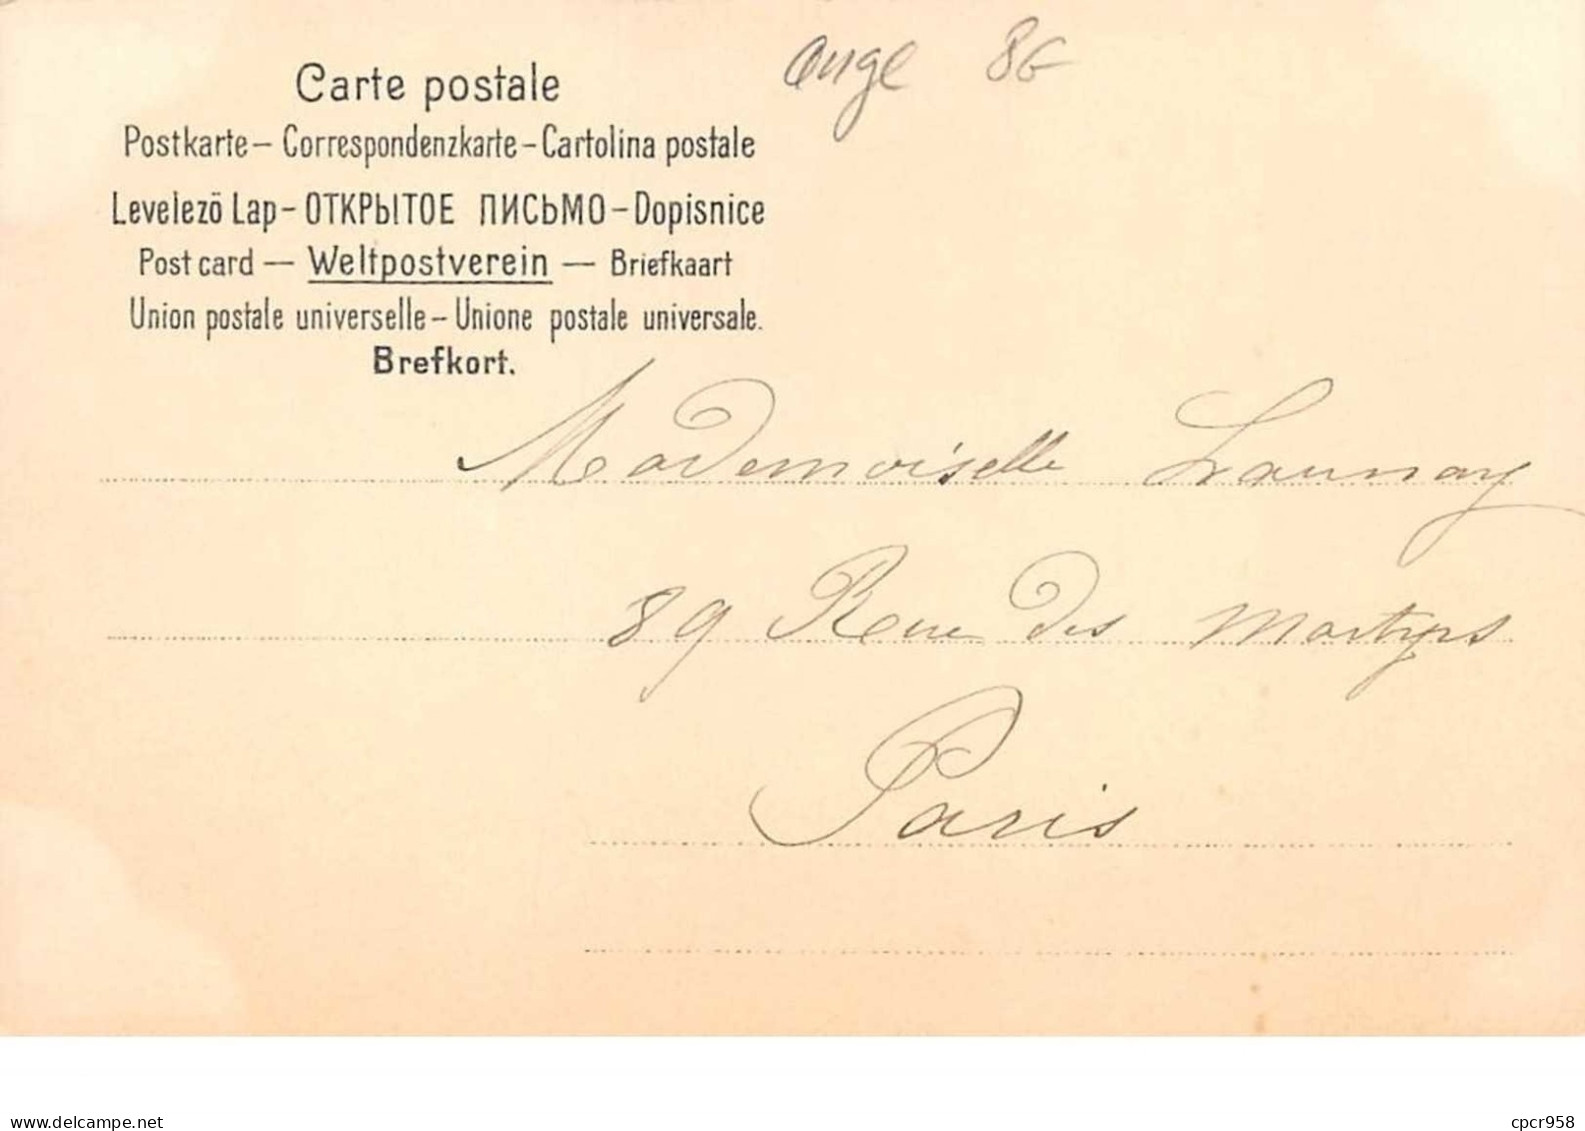 Carte postale
ange 8€
Postkarte – Correspondenzkarte – Cartolina postale
Levelezö Lap – ОТКРЫТОЕ ПИСЬМО – Dopisnice
Post card — Weltpostverein — Briefkaart
Union postale universelle – Unione postale universale.
Brefkort.
Mademoiselle Launay
89 Rue des Martyrs
Paris
www.delcampe.net
cpcr958